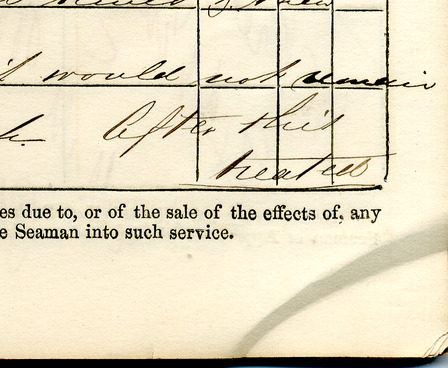 would not remain
After this
treated
es due to, or of the sale of the effects of, any
e Seaman into such service.